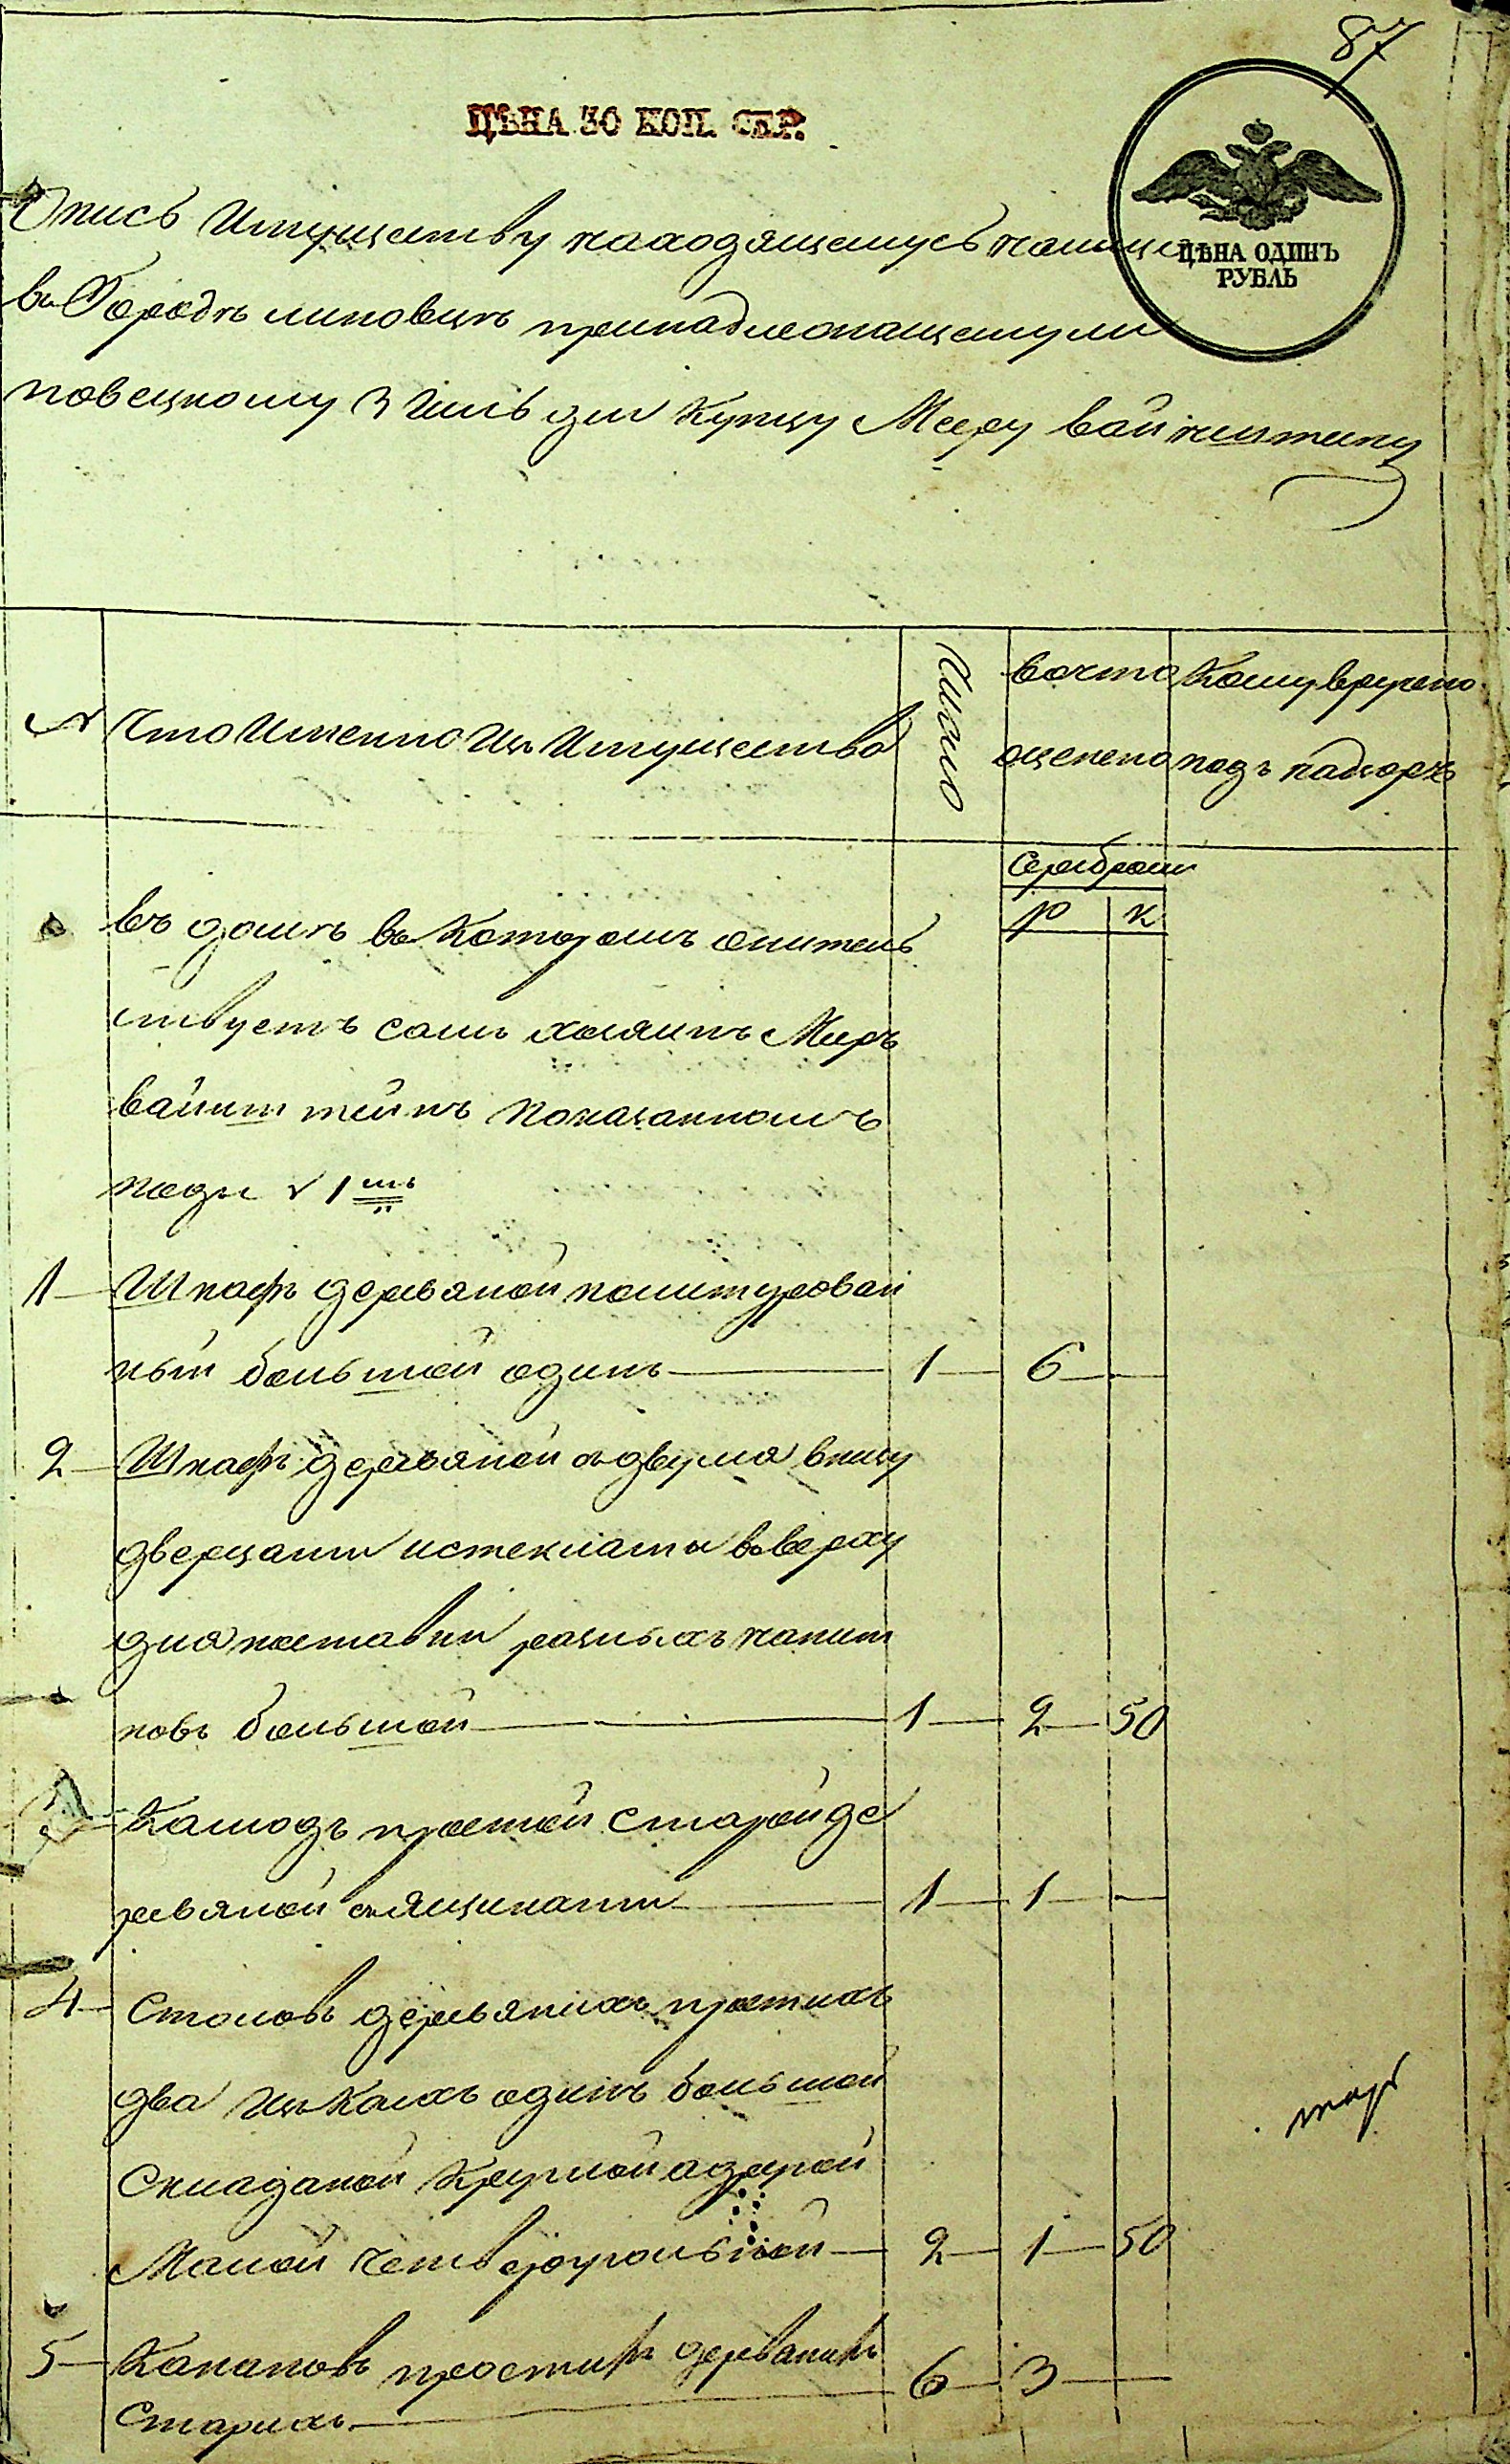 87
ЦѢНА 30 КОП. СЕР.
ЦѢНА ОДИНЪ
РУБЛЬ
Опись Имуществу находящемуся
въ Городѣ липовцѣ принадлежащему ли
повецкому 3 Гильдіи Купцу Меру Вайнштину
№ Что Именно Изъ Имущества
Число
во что
оценено
Кому вручено
подъ надзоръ
Серебромъ
р к
въ домѣ въ Которомъ жытель
ствуетъ самъ хозяинъ Меръ
Вайнштейнъ показанномъ
подъ № 1мъ
1 Шкафъ деревяной политурован
ный большой одинъ 1 6 —
2 Шкафъ деревяной съ двума внизу
дверцами и стеклами въ верху
для поставки разныхъ напит
ковъ большой 1 2 50
Камодъ простой Старой де
ревяной съ ящиками 1 1 —
4 Столовъ деревяныхъ простихъ
два Изъ Коихъ одинъ большой
Складаной Круглой а другой
Малой Четвероугольной 2 1 50
5 Канаповъ простихъ деревянихъ 6 3 —
Старихъ